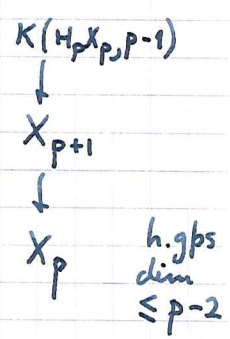 K(H_pX_p, p-1)
↓
X_{p+1}
↓
X_p
h.gps
dim
≤ p-2